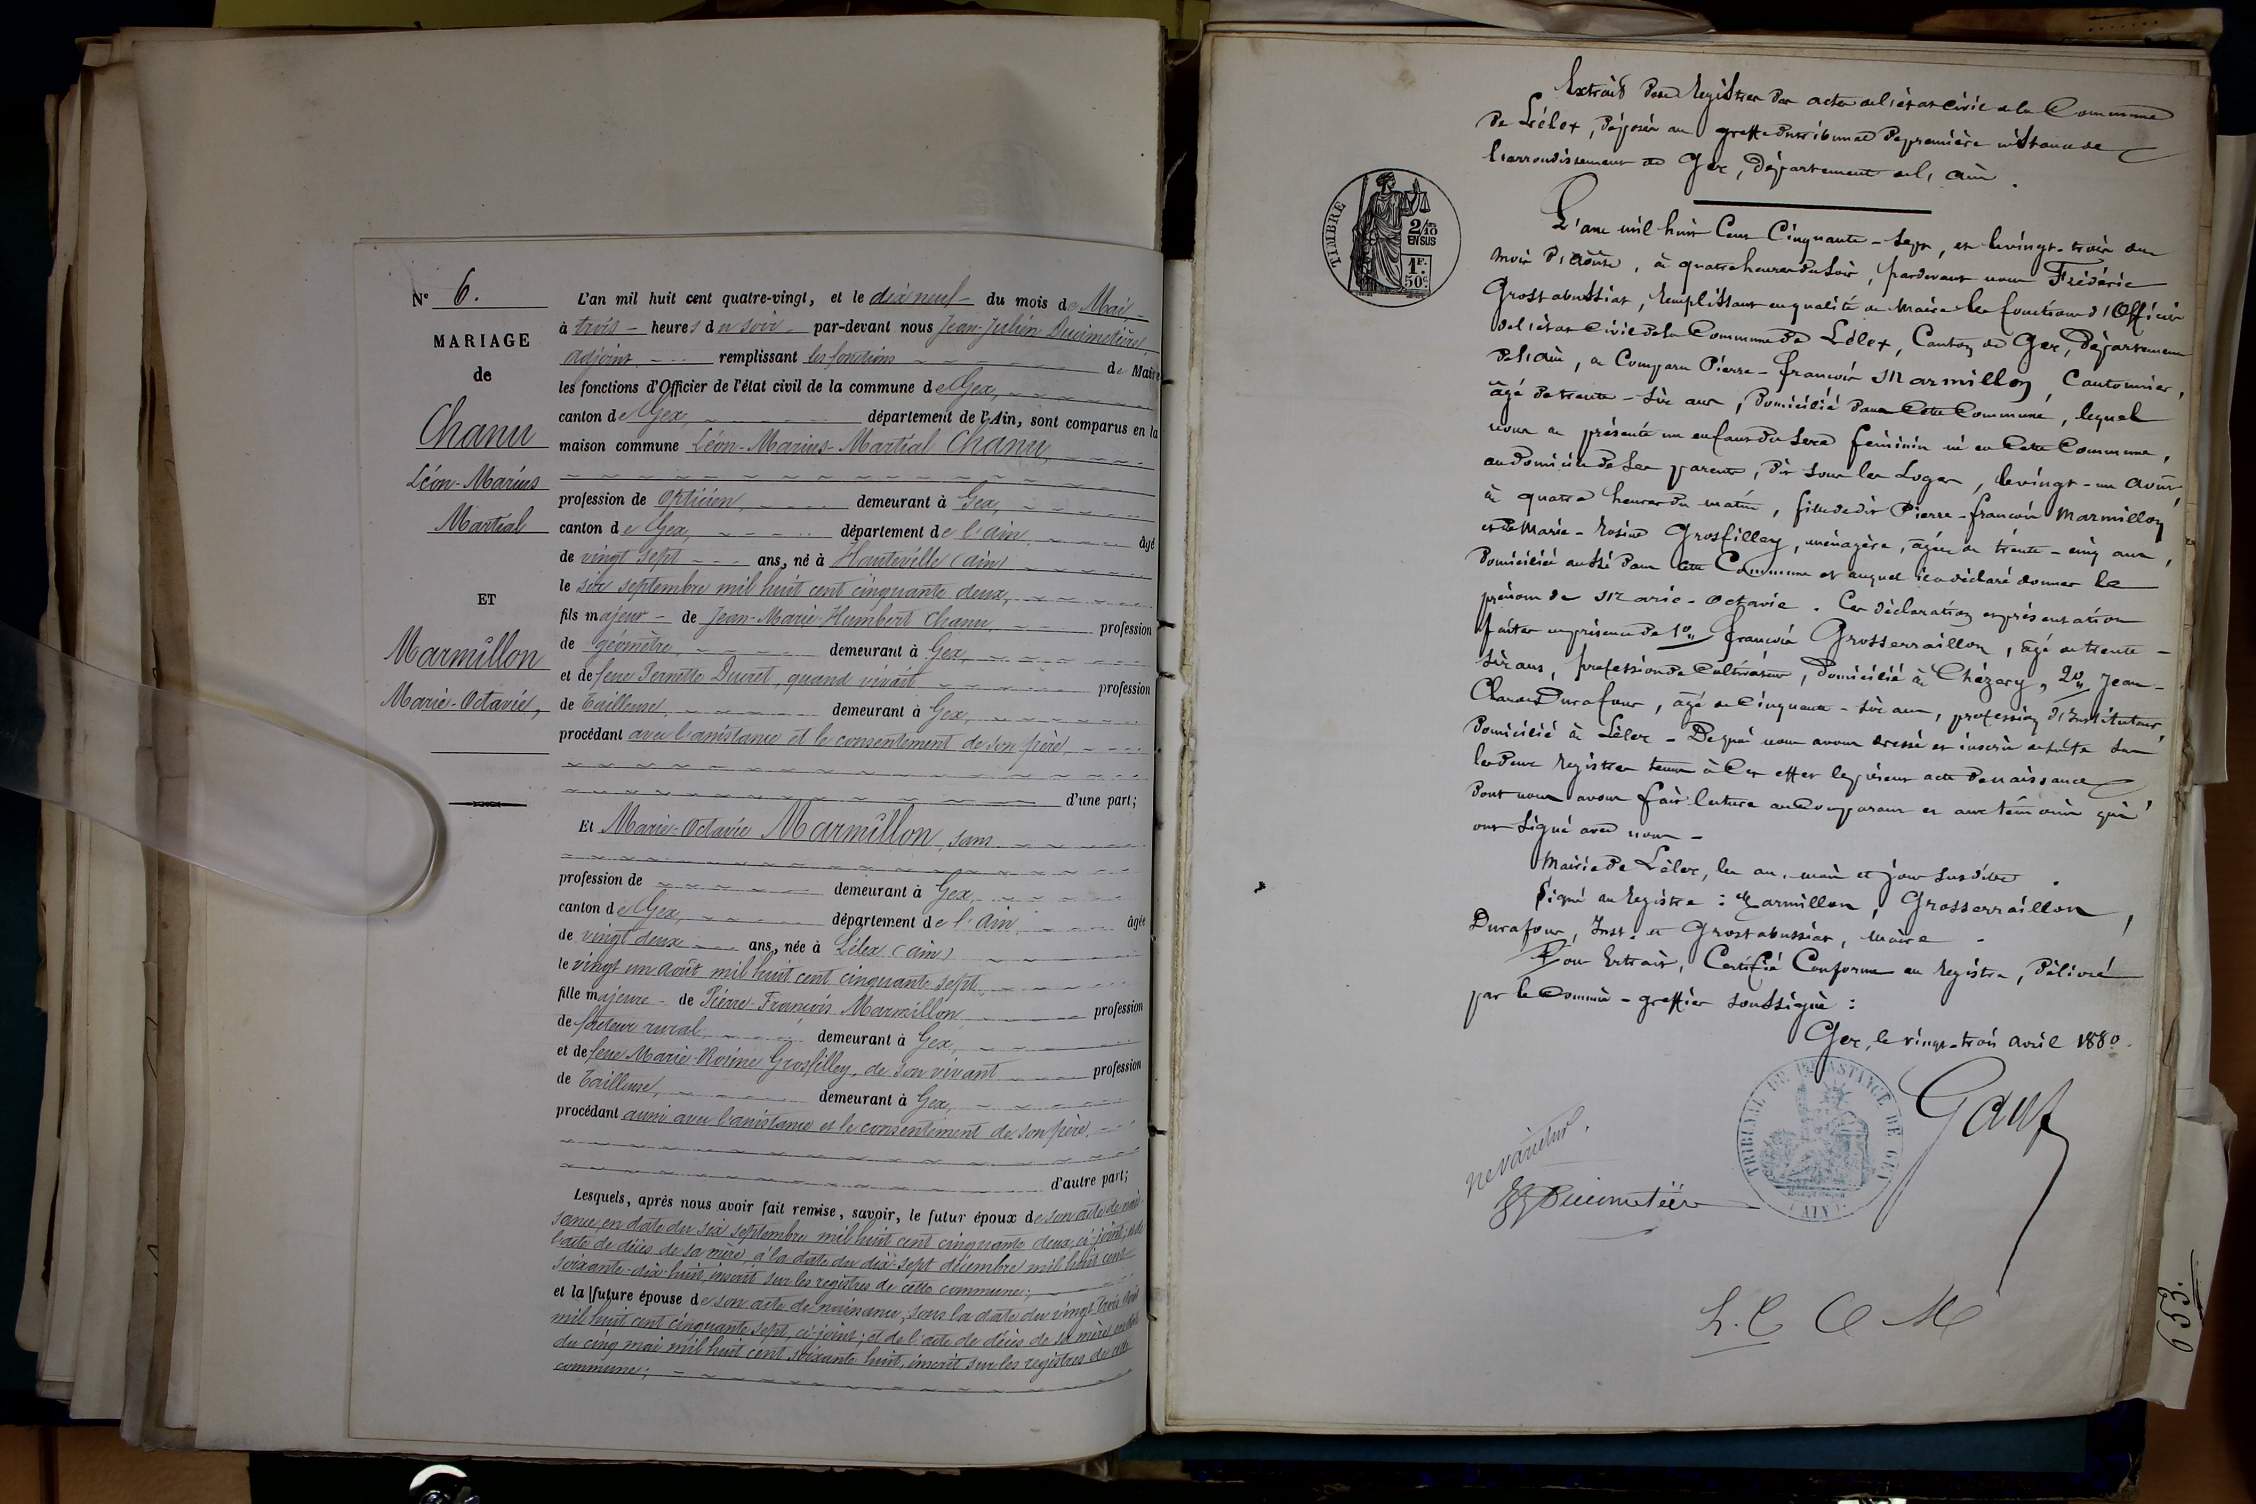 N° 6.
MARIAGE
de
Chanu
Léon-Marius
Martial
ET
Marmillon
Marie-Octavie,
L'an mil huit cent quatre-vingt, et le dix neuf du mois de Mai
à trois heures du soir par-devant nous Jean-Julien Ducimetière,
adjoint remplissant les fonctions de Maire
les fonctions d'Officier de l'état civil de la commune de Gex,
canton de Gex, département de l'Ain, sont comparus en la
maison commune Léon-Marius-Martial Chanu,
profession de opticien, demeurant à Gex,
canton de Gex, département de l'ain, âgé
de vingt sept ans, né à Hauteville (ain)
le six septembre mil huit cent cinquante deux,
fils majeur de Jean-Marie-Humbert Chanu, profession
de géomètre, demeurant à Gex,
et de feue Pernette Ducret, quand vivait profession
de Tailleuse, demeurant à Gex,
procédant avec l'assistance et le consentement de son père,
d'une part;
Et Marie-Octavie Marmillon, sans
profession de demeurant à Gex,
canton de Gex, département de l'Ain, âgée
de vingt deux ans, née à Lélex (ain)
le vingt un août mil huit cent cinquante sept,
fille majeure de Pierre-François Marmillon profession
de facteur rural, demeurant à Gex,
et de feue Marie-Rosine Grosfilley, de son vivant profession
de Tailleuse, demeurant à Gex,
procédant aussi avec l'assistance et le consentement de son père,
d'autre part;
Lesquels, après nous avoir fait remise, savoir, le futur époux de son acte de nais
sance, en date du six septembre mil huit cent cinquante deux, ci-joint, et de
l'acte de décès de sa mère, à la date du dix-sept décembre mil huit cent
soixante-dix-huit, inscrit sur les registres de cette commune;
et la future épouse de son acte de naissance, sous la date du vingt trois août
mil huit cent cinquante sept, ci-joint; et de l'acte de décès de sa mère, en date
du cinq mai mil huit cent soixante huit, inscrit sur les registres de cette
commune;
Extrait des Registres des actes de l'état civil de la Commune
de Lélex, déposés au greffe du tribunal de première instance de
l'arrondissement de Gex, département de l'ain.
TIMBRE
2/10 EN SUS
1F. 50c.
L'an mil huit Cent Cinquante-Sept, et le vingt-trois du
mois d'août, à quatre heures du soir, pardevant nous Frédéric
Grostabussiat, remplissant en qualité de Maire les fonctions d'Officier
de l'état civil de la Commune de Lélex, Canton de Gex, Département
de l'ain, a Comparu Pierre-françois Marmillon, Cantonnier,
âgé de trente-six ans, domicilié dans Cette Commune, lequel
nous a présenté un enfant du Sexe féminin né en Cette Commune,
au domicile de Ses parents, dit sous les Loges, le vingt-un Août,
à quatre heures du matin, fille de dit Pierre-françois Marmillon
et de Marie-Rosine Grosfilley, ménagère, âgée de trente-cinq ans,
domiciliée aussi dans Cette Commune et auquel il a déclaré donner le
prénom de Marie-Octavie. Ces déclaration et présentation
faites en présence de 1° françois Grosserraillon, âgé de trente-
six ans, profession de Cultivateur, domicilié à Chézery, 2° Jean-
Claude Durafour, âgé de Cinquante-six ans, profession d'Instituteur,
domicilié à Lélex - De quoi nous avons dressé et inscrit de suite sur
les deux registres tenus à Cet effet le présent acte de naissance
dont nous avons fait lecture au Comparant et aux témoins qui
ont Signé avec nous -
Mairie de Lélex, les an, mois et jour susdits.
Signé au Registre : Marmillon, Grosserraillon,
Durafour, Inst. et Grostabussiat, Maire.
Pour Extrait, Certifié Conforme au Registre, délivré
par le Commis-greffier soussigné :
Gex, le vingt-trois avril 1880.
TRIBUNAL DE 1ERE INSTANCE DE GEX
(AIN)
ne varietur.
Ducimetière
L. C O M
653.